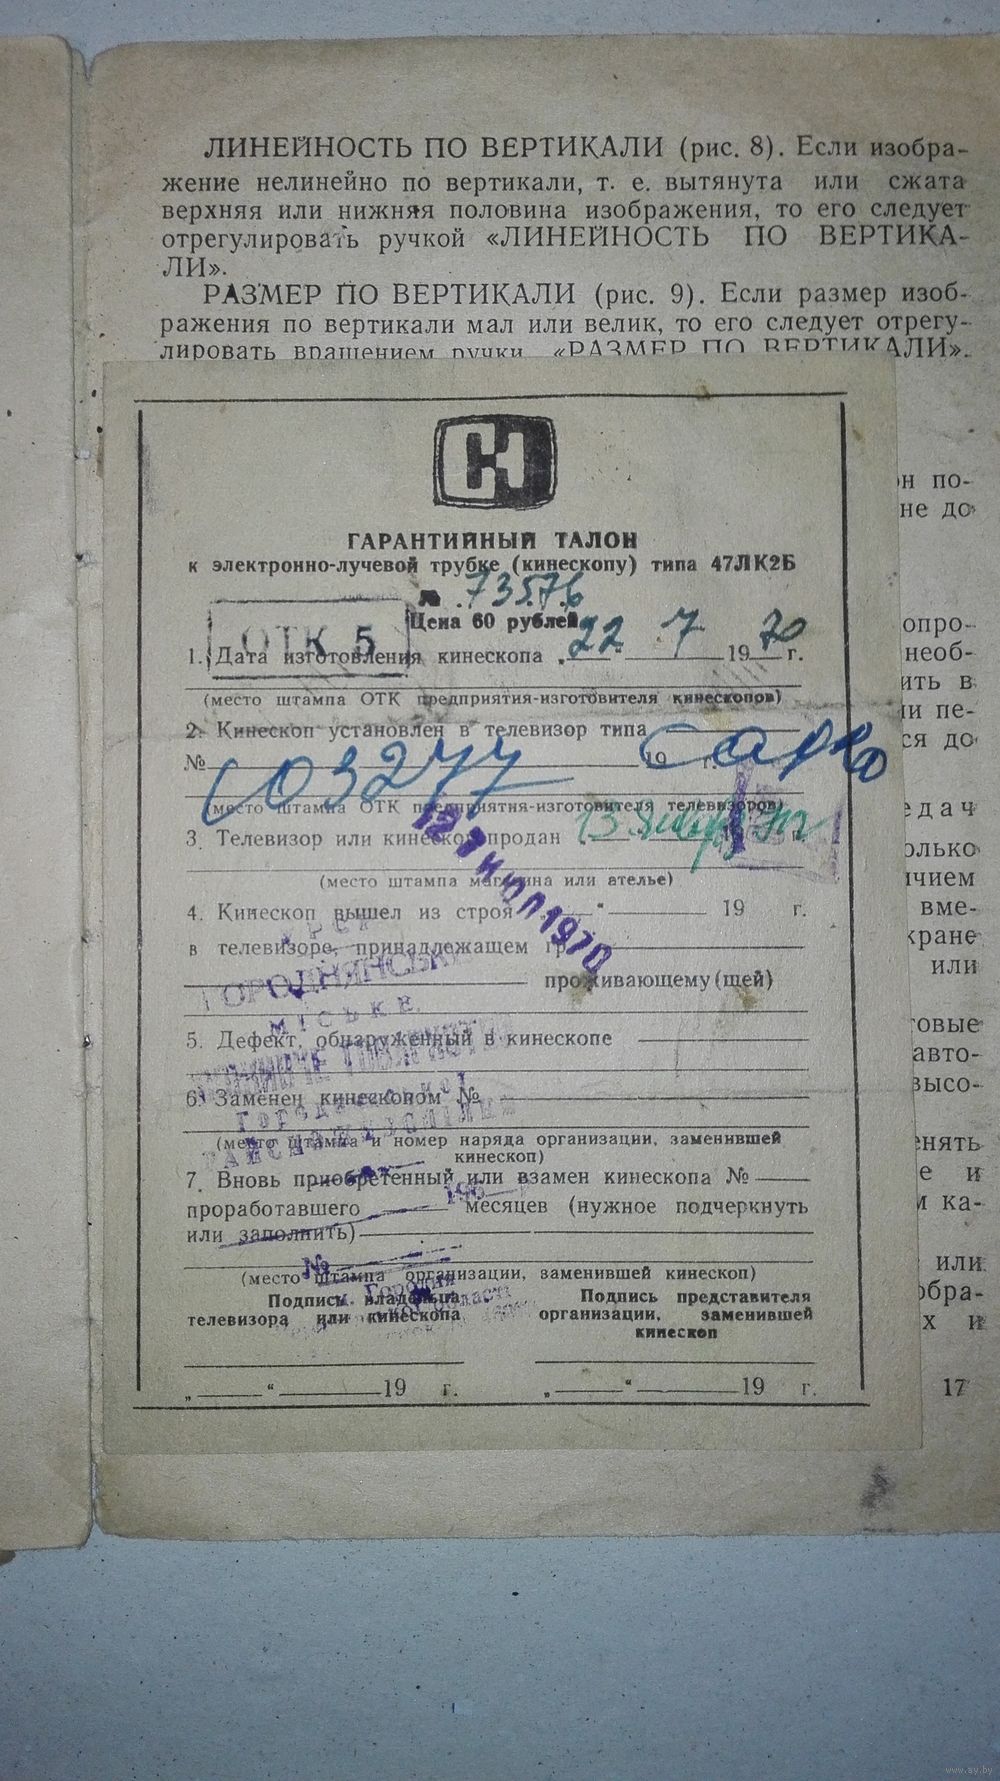 ЛИНЕЙНОСТЬ ПО ВЕРТИКАЛИ (рис. 8). Если изобра-
жение нелинейно по вертикали, т. е. вытянута или сжата
верхняя или нижняя половина изображения, то его следует
отрегулировать ручкой «ЛИНЕЙНОСТЬ ПО ВЕРТИКА-
ЛИ».
РАЗМЕР ПО ВЕРТИКАЛИ (рис. 9). Если размер изоб-
ражения по вертикали мал или велик, то его следует отрегу-
лировать вращением ручки «РАЗМЕР ПО ВЕРТИКАЛИ».
ГАРАНТИЙНЫЙ ТАЛОН
к электронно-лучевой трубке (кинескопу) типа 47ЛК2Б
№ 73576
Цена 60 рублей
ОТК 5
1. Дата изготовления кинескопа 22 7 1970 г.
(место штампа ОТК предприятия-изготовителя кинескопов)
2. Кинескоп установлен в телевизор типа
№ 19 г.
(место штампа ОТК предприятия-изготовителя телевизоров)
3. Телевизор или кинескоп продан 13 января г.
12 1970
(место штампа магазина или ателье)
4. Кинескоп вышел из строя " 19 г.
в телевизоре, принадлежащем гр.
проживающему (щей)
ГОРОДНЯНСЬКЕ
МІСЬКЕ
5. Дефект, обнаруженный в кинескопе
6. Заменен кинескопом №
(место штампа и номер наряда организации, заменившей
кинескоп)
7. Вновь приобретенный или взамен кинескопа №
196
проработавшего месяцев (нужное подчеркнуть
или заполнить)
№
(место штампа организации, заменившей кинескоп)
Подпись владельца
телевизора или кинескопа
Подпись представителя
организации, заменившей
кинескоп
„ “ 19 г.
„ “ 19 г.
н по-
не до
опро-
необ-
ить в
и пе-
ся до
едач
олько
ичием
вме-
кране
или
товые
авто-
высо-
енять
е и
м ка-
или
обра-
х и
17
www.ay.by